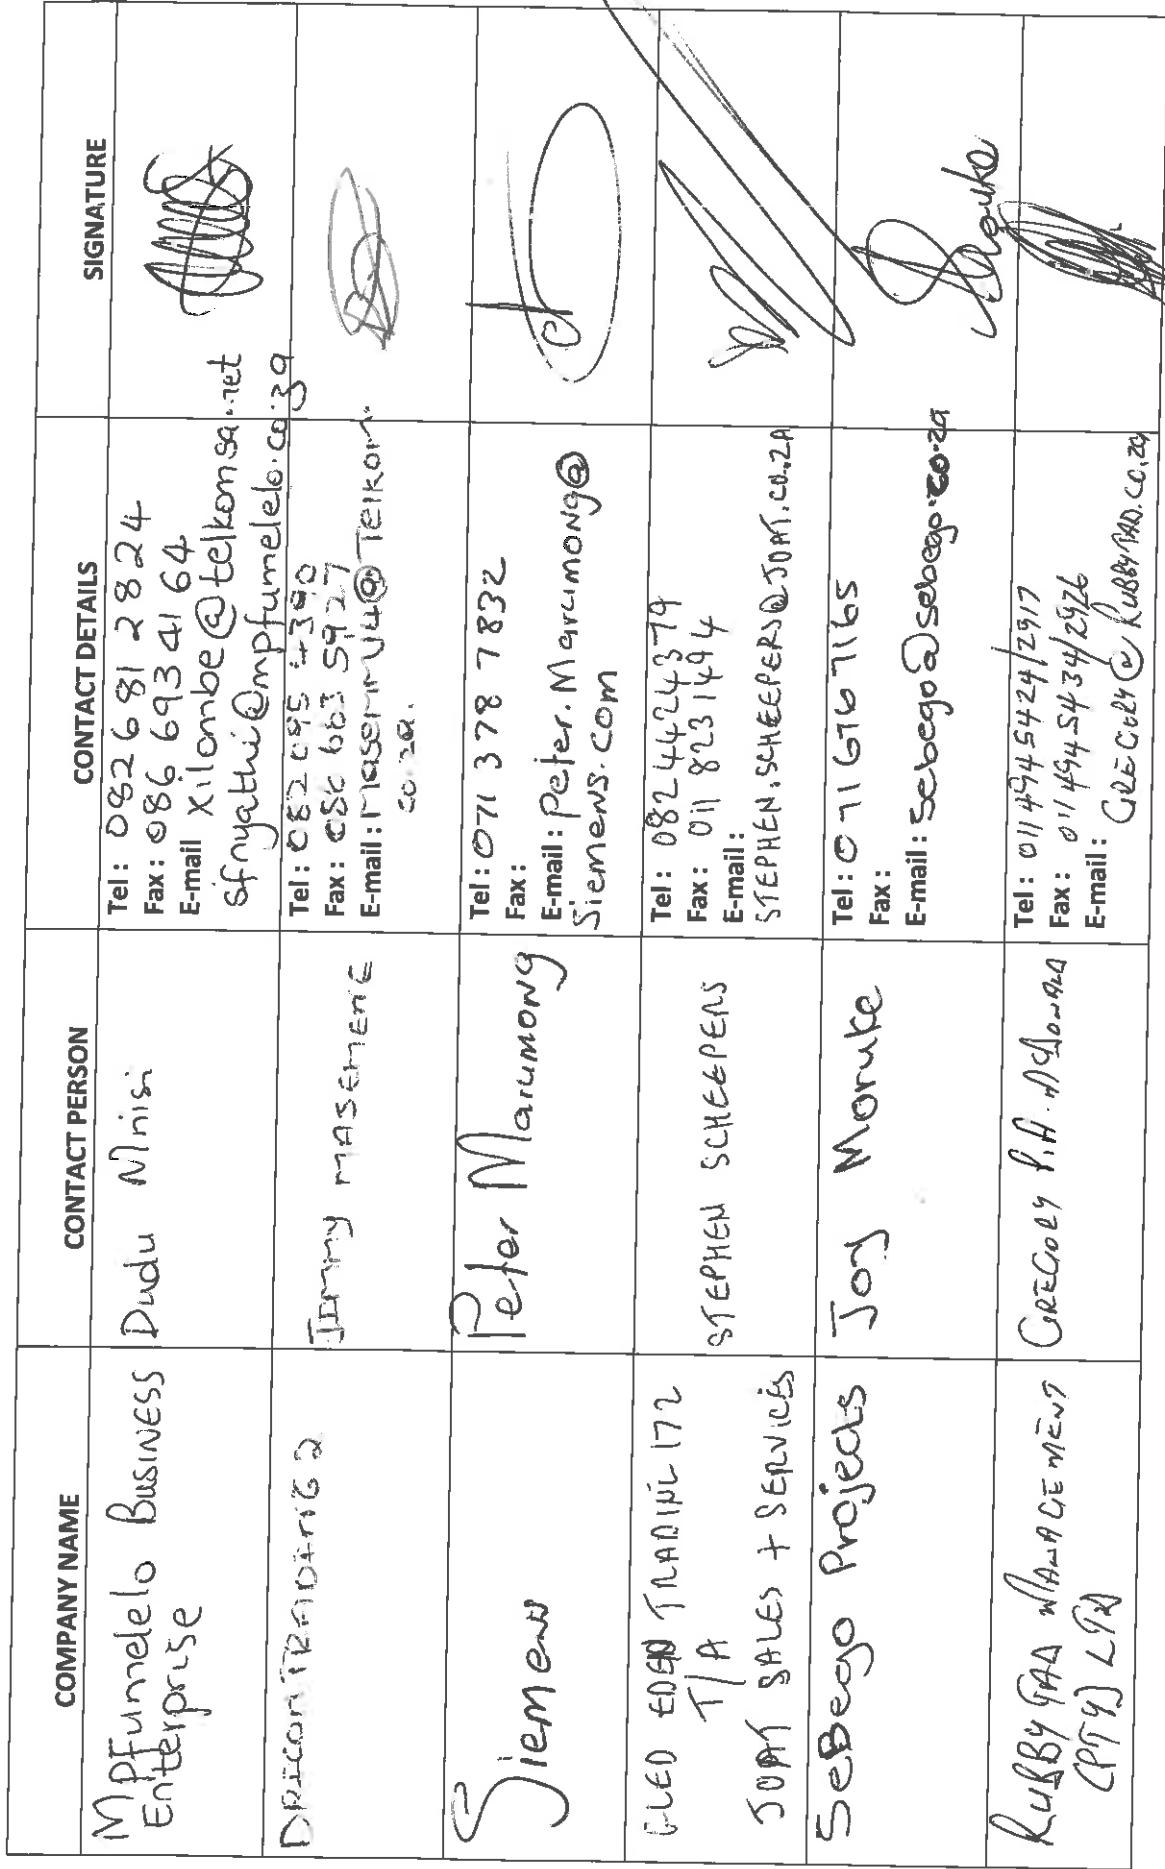 COMPANY NAME
CONTACT PERSON
CONTACT DETAILS
SIGNATURE
MPFumelelo BUSINESS
Enterprise
Dudu Mnisi
Tel : 082 681 2824
Fax : 086 693 4164
E-mail Xilombe@telkomsa.net
sfnyathi@mpfumelelo.co.za
JIMMY MASEMENE
Tel : 082 095 4390
Fax : 086 663 5927
E-mail :
co.za.
Siemens
Peter Marumong
Tel : 071 378 7832
Fax :
E-mail : Peter.Marumong@
Siemens.com
EDEN TRADING 172
T/A
JOAT SALES + SERVICES
STEPHEN SCHEEPERS
Tel : 0824424379
Fax : 011 823 1494
E-mail :
STEPHEN.SCHEEPERS@JOAT.CO.ZA
SeBego Projects
Joy Moruke
Tel : 071 676 7165
Fax :
E-mail : Sebego@sebego.co.za
Moruke
RUBBY TAD MANAGEMENT
(PTY) LTD
GREGORY P.A. McDONALD
Tel : 011 494 5424/2917
Fax : 011 494 5434/2926
E-mail :
GREGORY@RUBBYTAD.CO.ZA